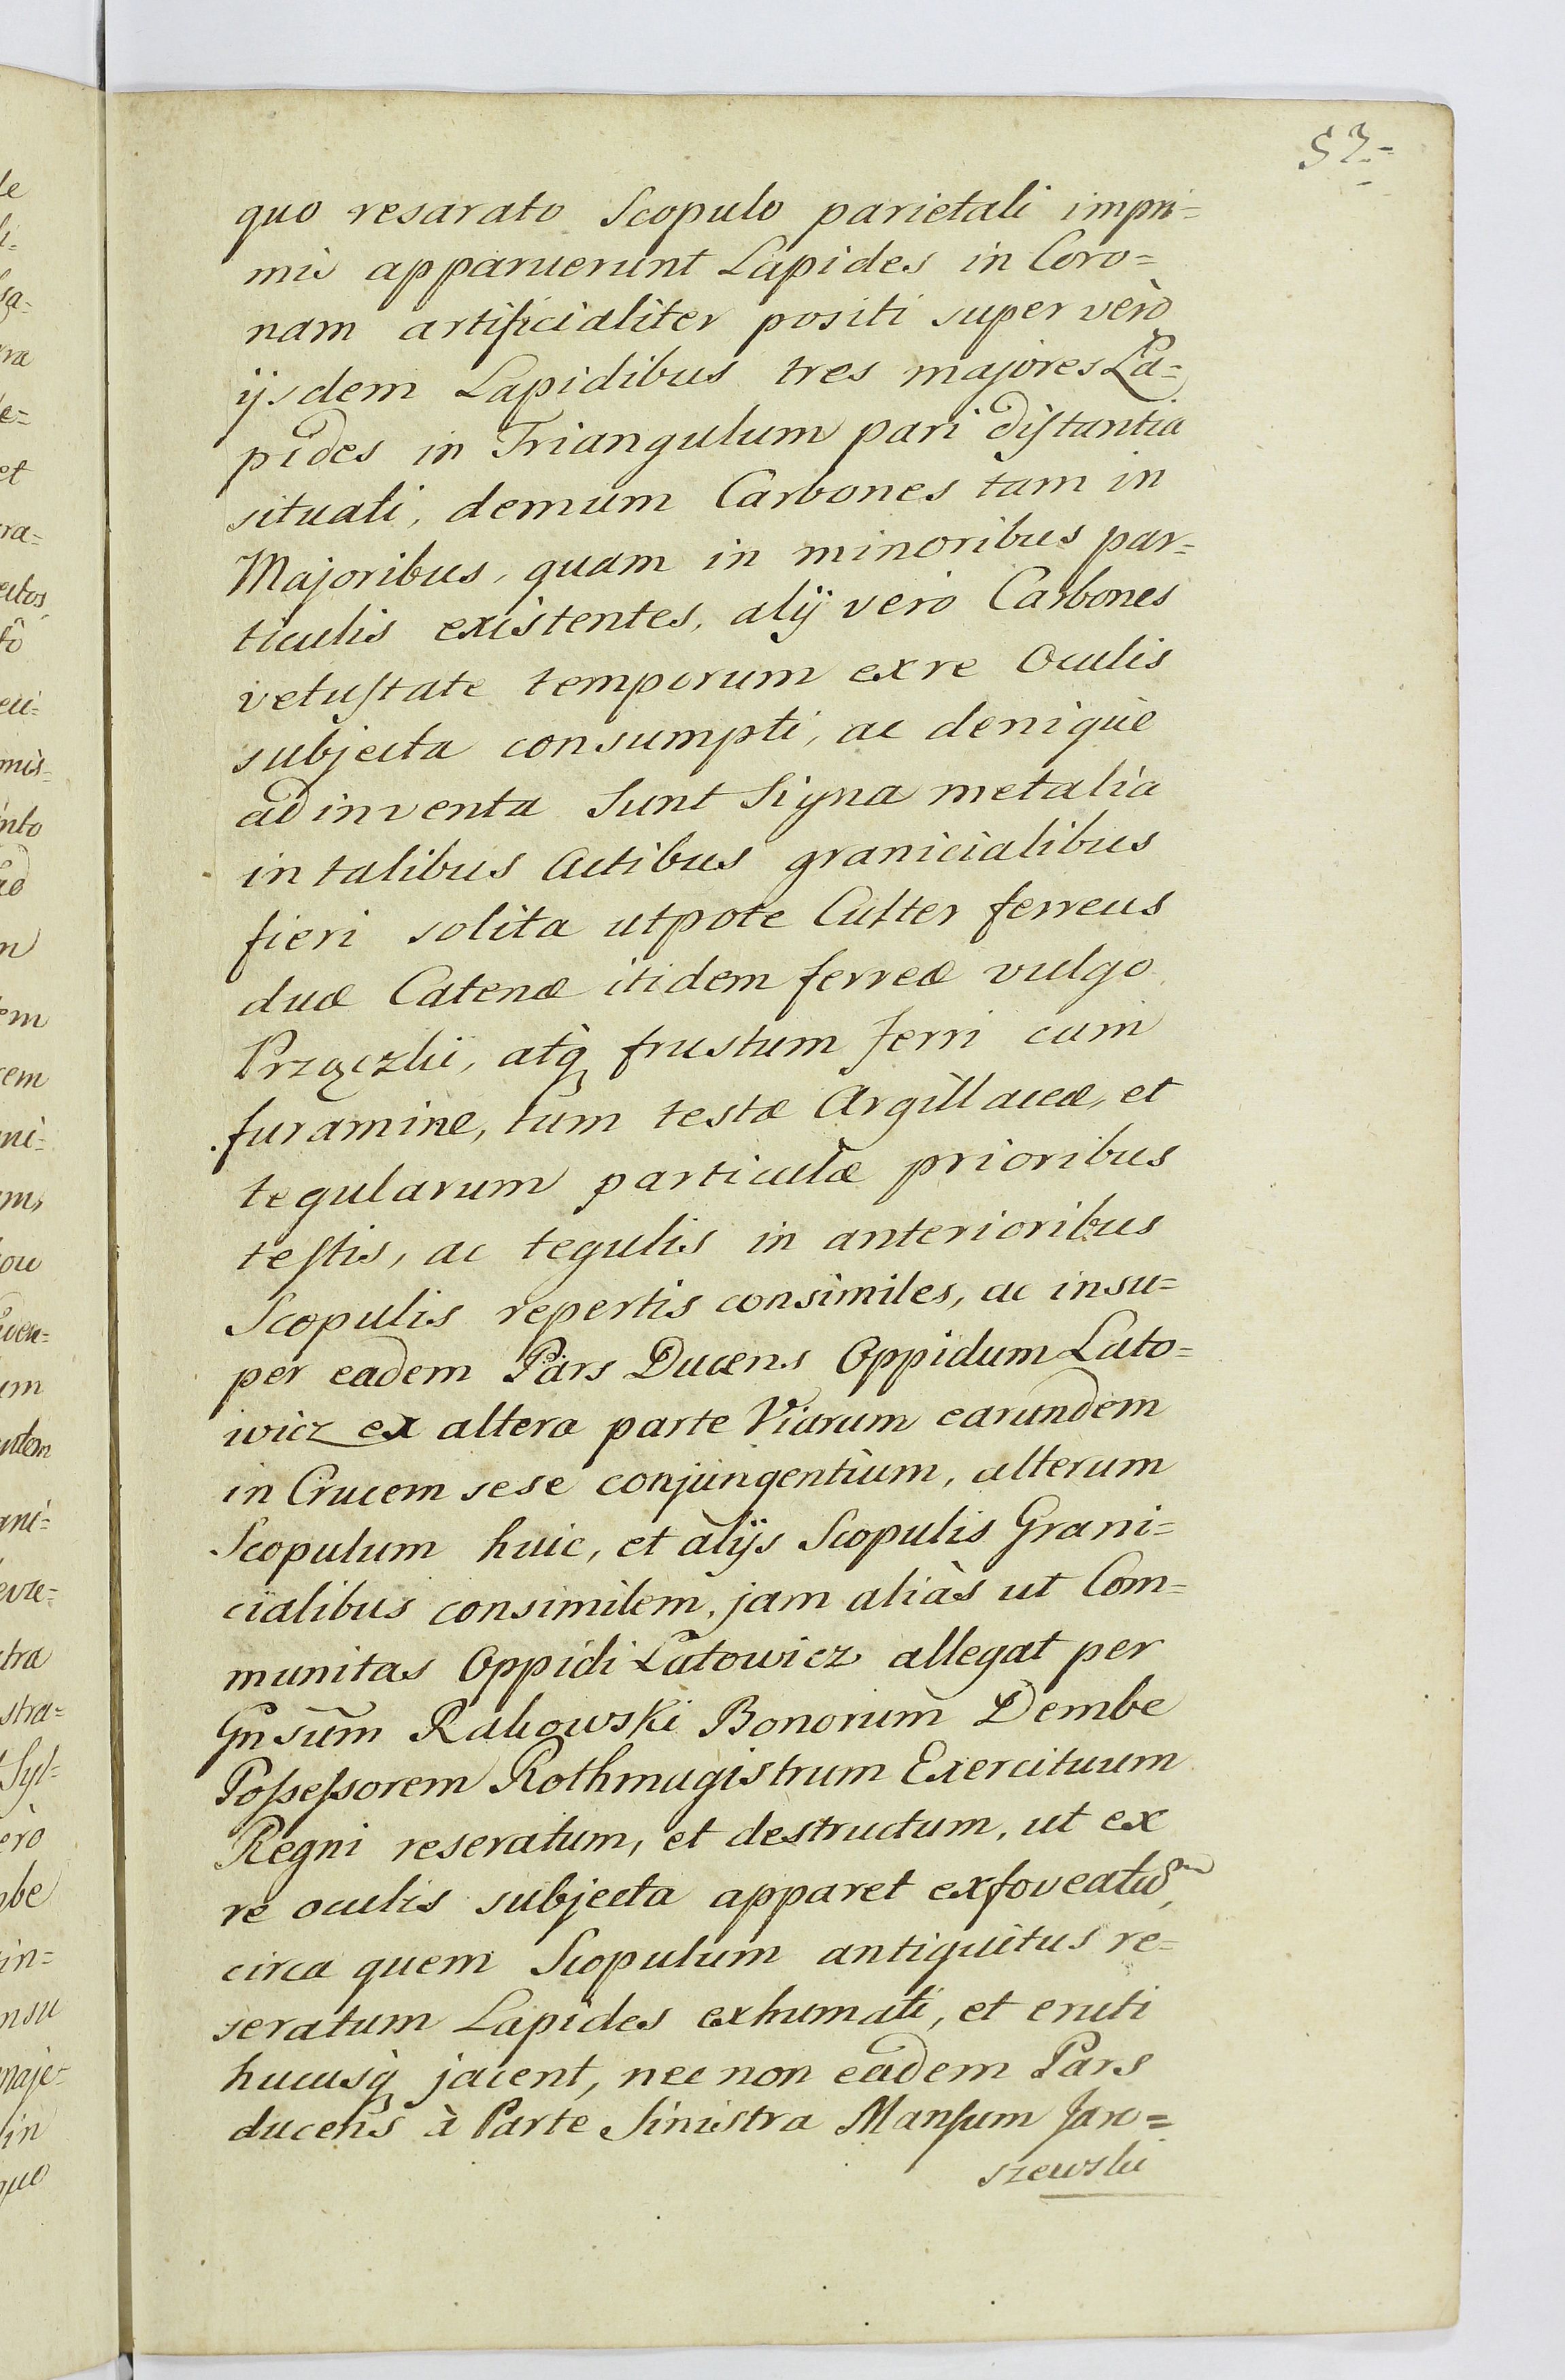 53.=
quo resarato Scopulo parietali impri=
mis apparuerunt Lapides in Coro=
nam artificialiter positi super verò
ijsdem Lapidibus tres majores La=
pides in Triangulum pari distantia
situati, demum Carbones tam in
Majoribus, quam in minoribus par=
ticulis existentes, alij vero Carbones
vetustate temporum ex re Oculis
subjecta consumpti, ac denique
adinventa Sunt Signa metalia
in talibus Actibus granicialibus
fieri solita utpote Culter ferreus
duæ Catenæ itidem ferreæ vulgo
Przączki, atq́ frustum ferri cum
furamine, tum testæ Argillaceæ, et
tegularum particulæ prioribus
testis, ac tegulis in anterioribus
Scopulis repertis consimiles, ac insu=
per eadem Pars Ducens Oppidum Lato=
wicz ex altera parte Viarum earundem
in Crucem sese conjungentium, alterum
Scopulum huic, et alijs Scopulis Grani=
cialibus consimilem, jam aliàs ut Com=
munitas Oppidi Latowicz allegat per
Gnsūm Rakowski Bonorum Dembe
Possessorem Rothmagistrum Exercituum
Regni reseratum, et destructum, ut ex
re oculis subjecta apparet exfoveatũ,
circa quem Scopulum antiquitus re=
seratum Lapides exhumati, et eruti
hucusq́ jacent, nec non eadem Pars
ducens à Parte Sinistra Mansum Jaro=
szewski